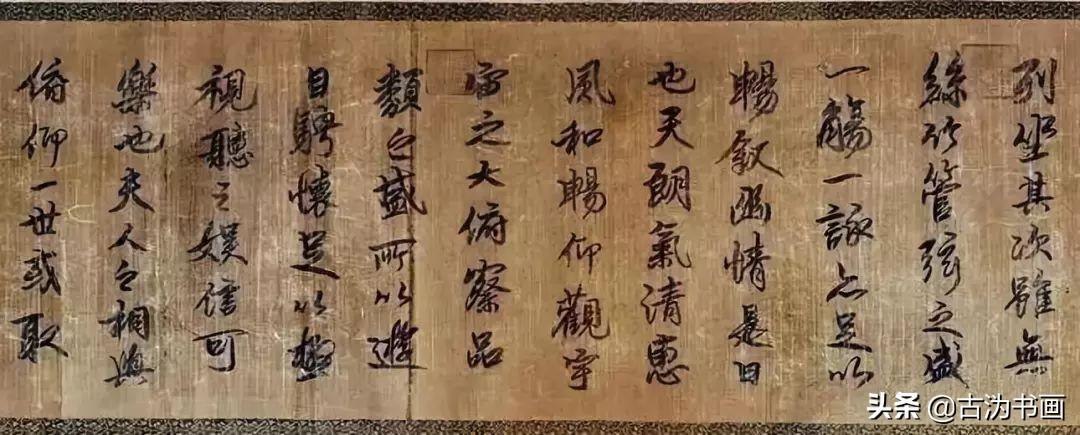 列坐其次雖無
絲竹管弦之盛
一觴一詠亦足以
暢敘幽情是日
也天朗氣清惠
風和暢仰觀宇
宙之大俯察品
類之盛所以遊
目騁懷足以極
視聽之娛信可
樂也夫人之相與
俯仰一世或取
头条@古沩书画